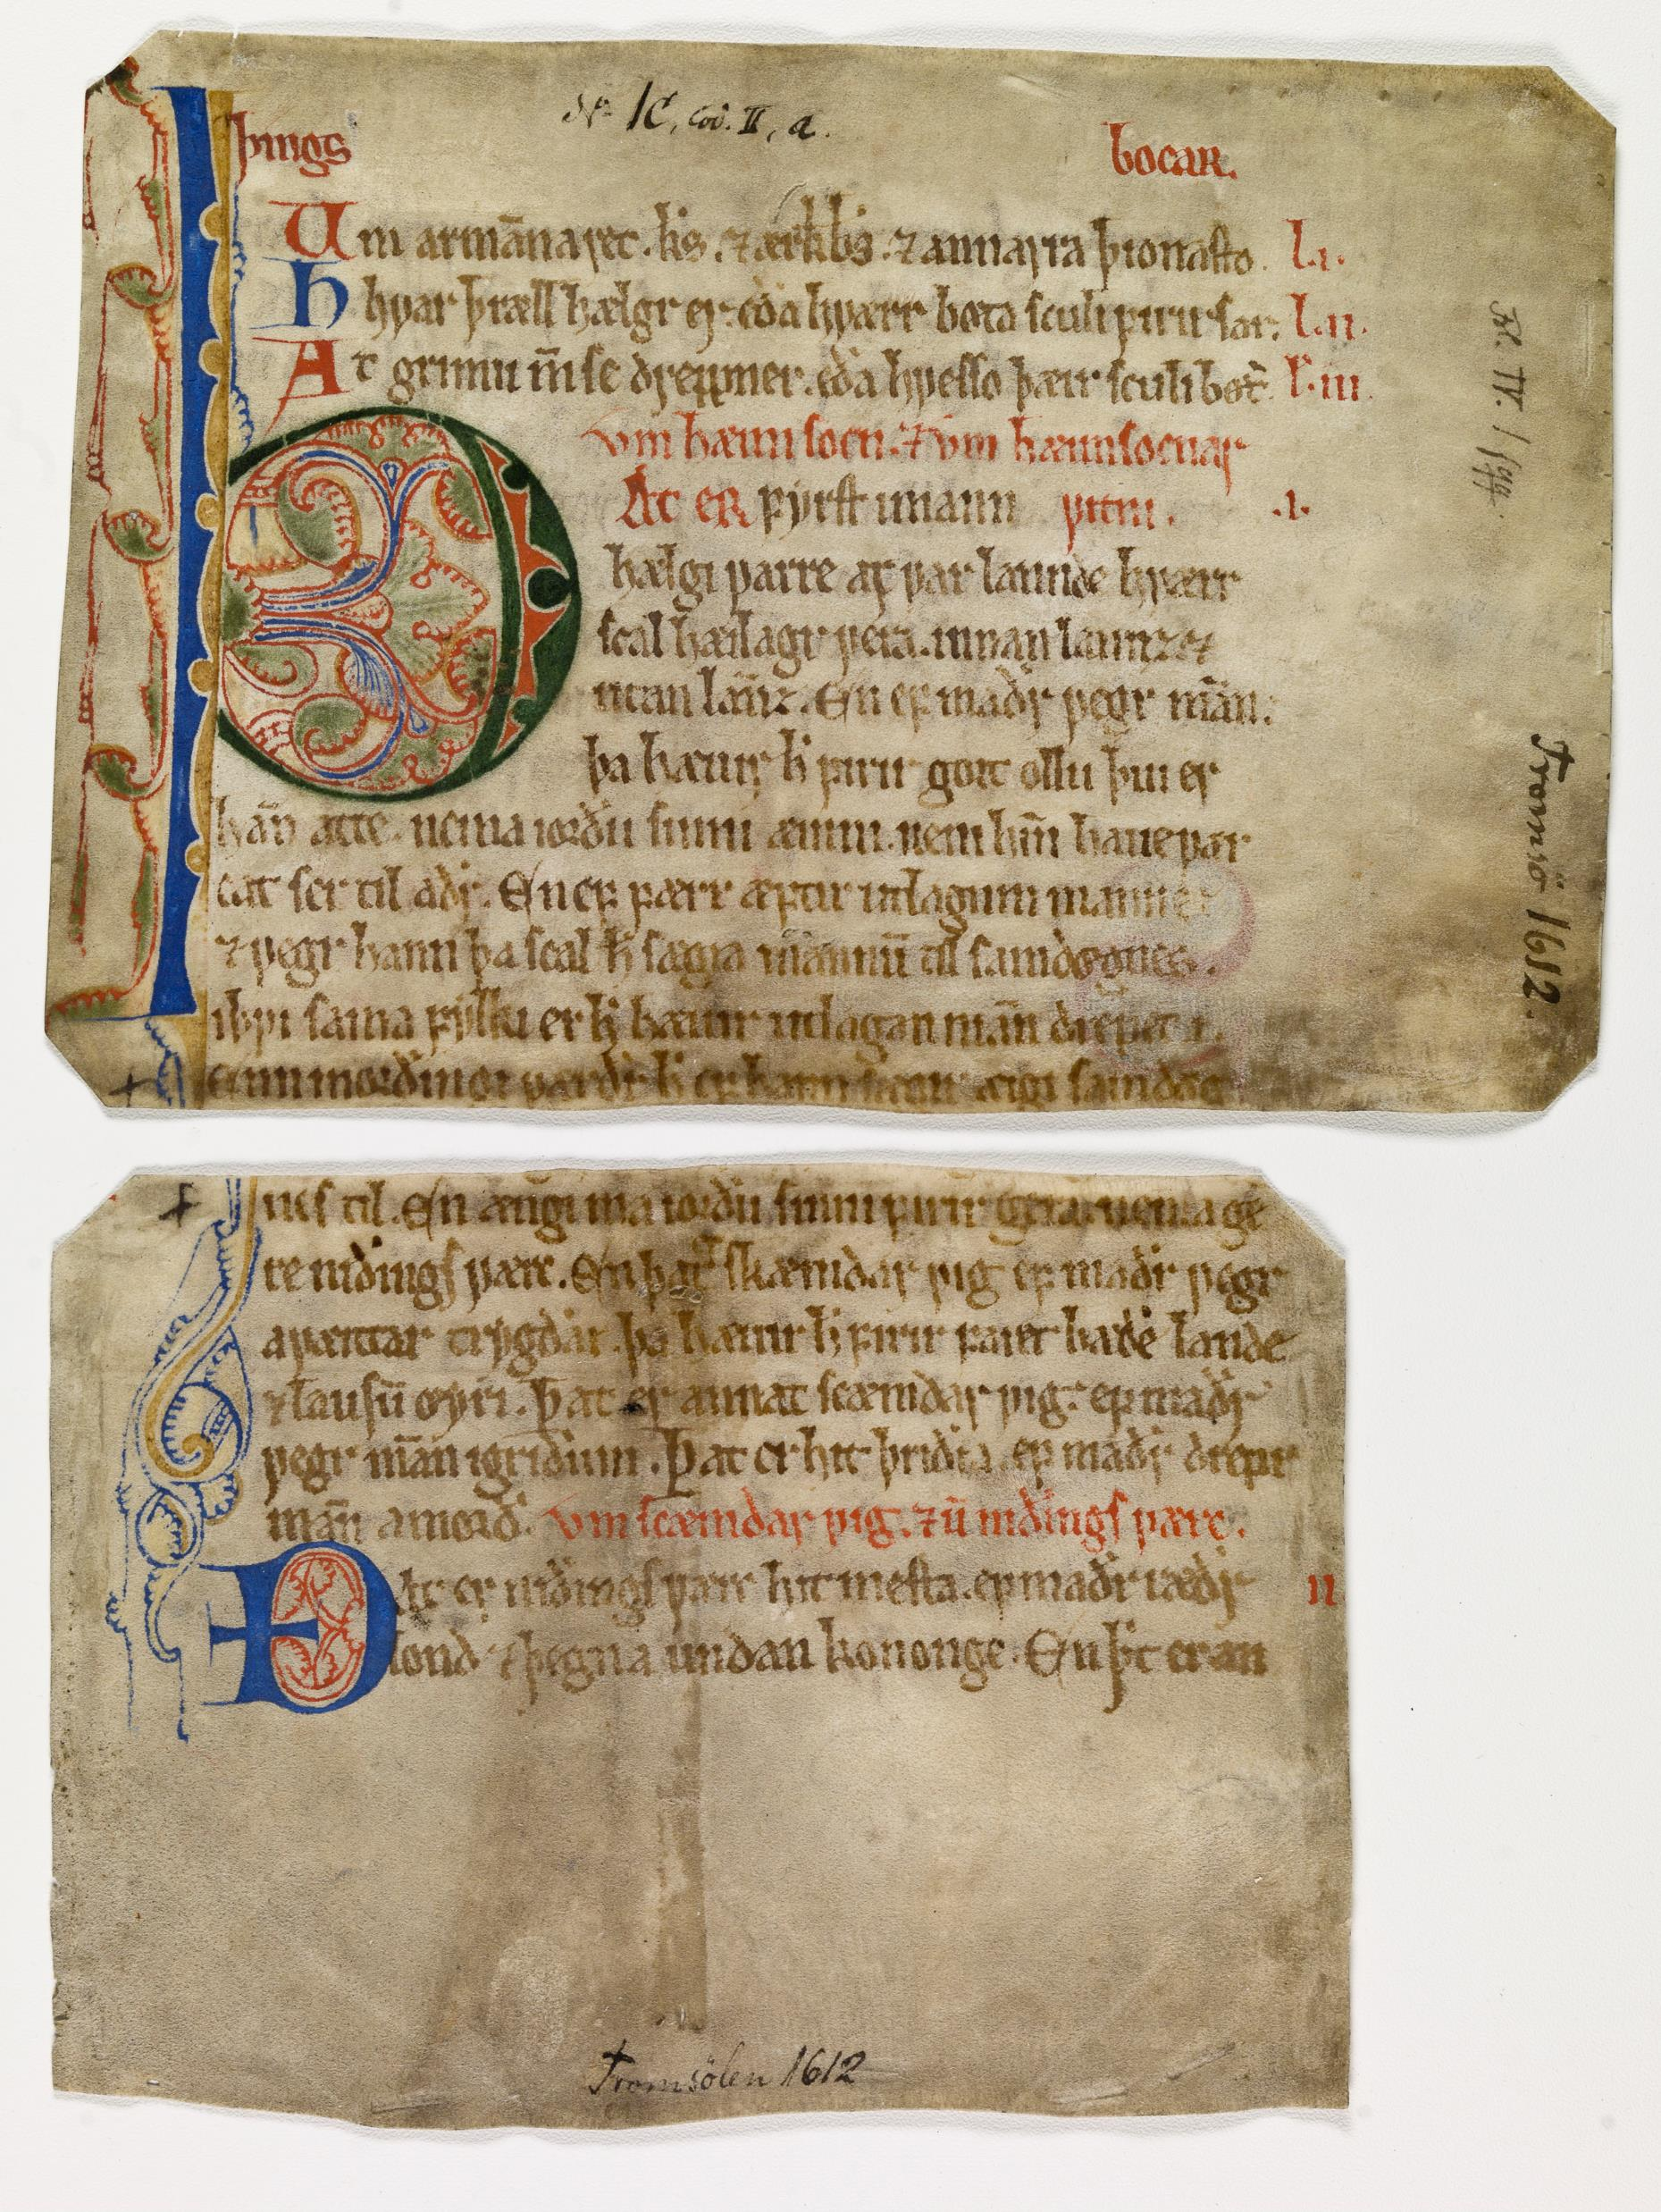 þings
Nº 1C, Cod. II, a.
bocar.
Um armannaręt. ks. ⁊ ærkibs. ⁊ annarra þionasto. l.i.
Hhvar þræll hælgr er. eða hværr bøta sculi firir sar. l.ii.
At grimu m̄ se drepnir. eða hvesso þæir sculi bøt̄. l.iii.
Vm hæimsocn. ⁊ vm hæimsocnar
Þat er fyrst imann vitni. .i.
hælgi varre at var lannde hværr
scal hæilagr vera. innan lannz ⁊
utan lānz. En ef maðr vegr mān.
þa hævir h̄ firir gort ollū þui er
hān atte. nema iorðū sinni æinni. vem hm̄ haue var
cat ser til aðr. En ef færr æftir utlagum manne
⁊ vegr hann þa scal h̄ sægia mannū til samdøgnes.
ihvi sama fylki er h̄ hævir utlagan mān drepet i.
enn morðingi værðr h̄ ef hann sæger æigi samdøg
nes til. En ængi ma iorðū sinni firir gera. nema ge
re niðings værc. En þat̄ skæmdar vig ef maðr vegr
avæittar trygðar. þa hævir h̄ firir faret baðe lande
⁊ lausū øyri. Þat er annat scæmdar vig. ef maðr
vegr mān igriðum. Þat er hit þriðia ef maðr drepr
mān amorð. Vm scæmdar vig. ⁊ ū niðings værc.
Þat er niðings værc hit mesta. ef maðr ræðr ii
lond ⁊ þegna undan kononge. En þ̄t er an
Tromsö 1612.
Tromsölen 1612